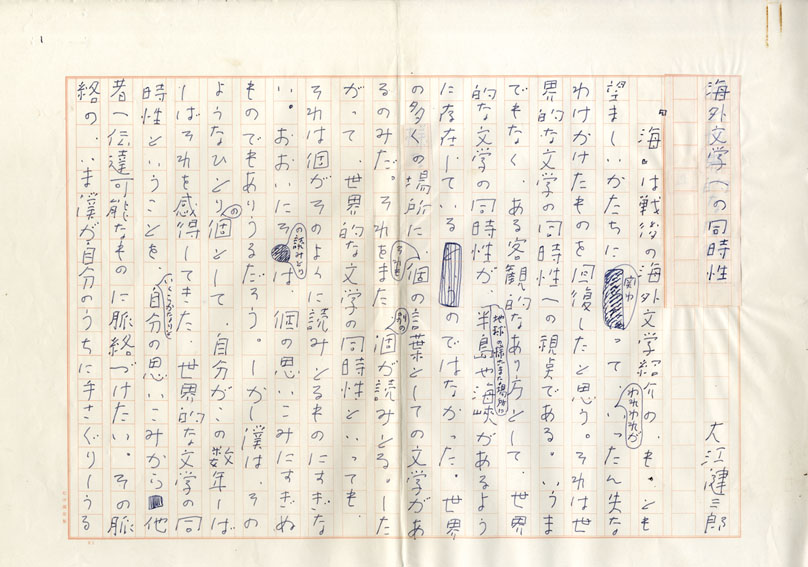 1
海外文学への同時性
大江健三郎
『海』は戦後の海外文学紹介の、もっとも
望ましいかたちに って、われわれがいったん失な
わけかけたものを回復したと思う。それは世
界的な文学の同時性への視点である。いうま
でもなく、ある客観的なあり方として、世界
的な文学の同時性が、地球の様ざまな場所に半島や海峡があるよう
に存在しているのではなかった。世界
の多くの場所に、個の言葉としての文学があ
るのみだ。それをまた別の個が読みとる。した
がって、世界的な文学の同時性といっても、
それは個がそのように読みとるものにすぎな
い。おおいにその読みとりは、個の思いこみにすぎぬ
ものでもありうるだろう。しかし僕は、その
ようなひとりの個として、自分がこの数年しば
しばそれを感得してきた、世界的な文学の同
時性ということを、いくらかなりと自分の思いこみから他
者へ伝達可能なものに脈絡づけたい。その脈
絡の、いま僕が自分のうちに手さぐりしうる